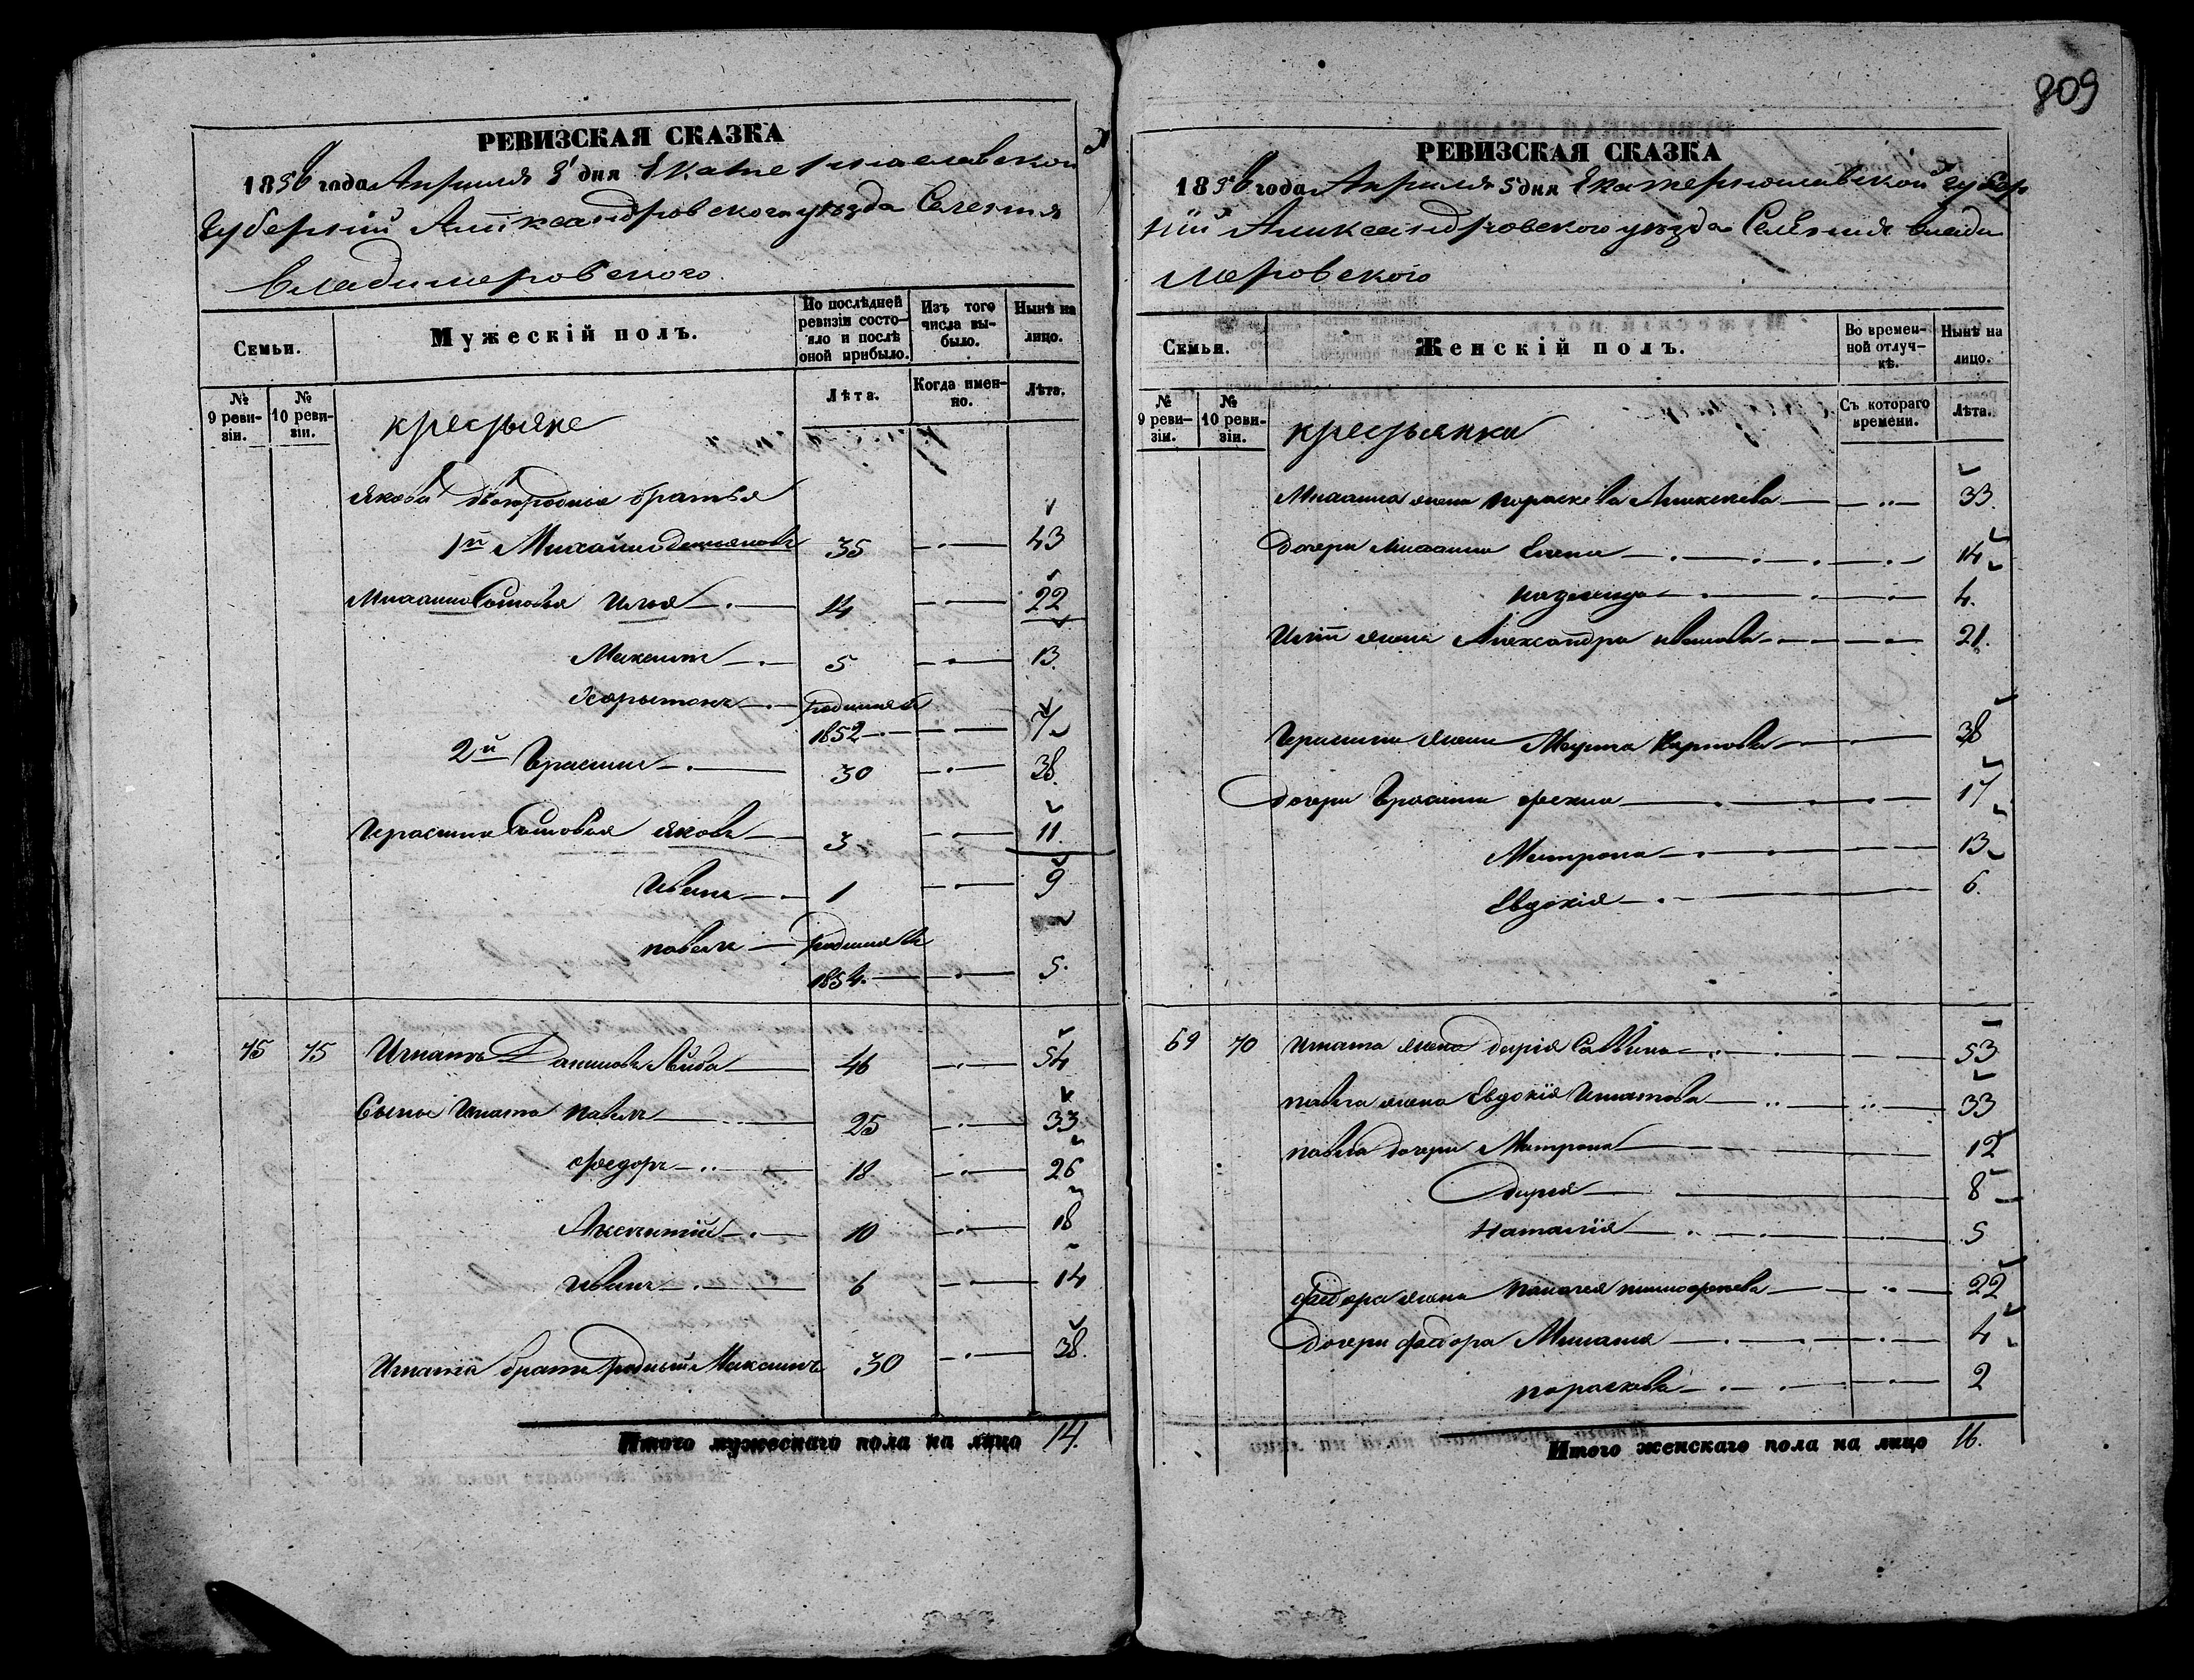 809
РЕВИЗСКАЯ СКАЗКА
1858 года Апреля дня Екатеринославской
Губернии Александровского уезда Селения
Владимеровского
Семьи.
Мужескій полъ.
По послѣдней ревизіи состояло и послѣ оной прибыло.
Изъ того числа выбыло.
Нынѣ на лицо.
№ 9 ревизіи.
№ 10 ревизіи.
крестьяне
Лѣта.
Когда именно.
Лѣта.
Якова двоюродные братья
1й Михайло Демьяновъ 35 43
Сыновья Илья 14 22
Максимъ 5 13
Харытонъ родился въ
1852 7
2й Герасимъ 30 38
Герасима Сыновья Яковъ 3 11
Иванъ 1 9
павелъ родился въ
1854 5
75 75 Игнатъ Даниловъ 46 54
Сыны Игната павелъ 25 33
Федоръ 18 26
10 18
Иванъ 6 14
Игната братъ родный Максимъ 30 38
Итого мужескаго пола на лицо 14.
РЕВИЗСКАЯ СКАЗКА
1858 года Апреля 5 дня Екатеринославской Губер
нии Александровского уезда Селения Влади
меровского
Семьи.
Женскій полъ.
Во временной отлучкѣ.
Нынѣ на лицо.
№ 9 ревизіи.
№ 10 ревизіи.
крестьянки
Съ котораго времени.
Лѣта.
жена Пораскева 33
дочери Елена 14
4
Ильи жена Александра Иванова 21
Герасима жена Карпова 38
дочери Герасима 17
Матрона 13
Евдокія 6
69 70 Игната жена дарія Саввина 53
павла жена Евдокія Игнатова 33
павла дочери Матрона 12
дарія 8
Наталія 5
Федора жена пелагея 22
дочери федора Миланія 4
пораскева 2
Итого женскаго пола на лицо 16.